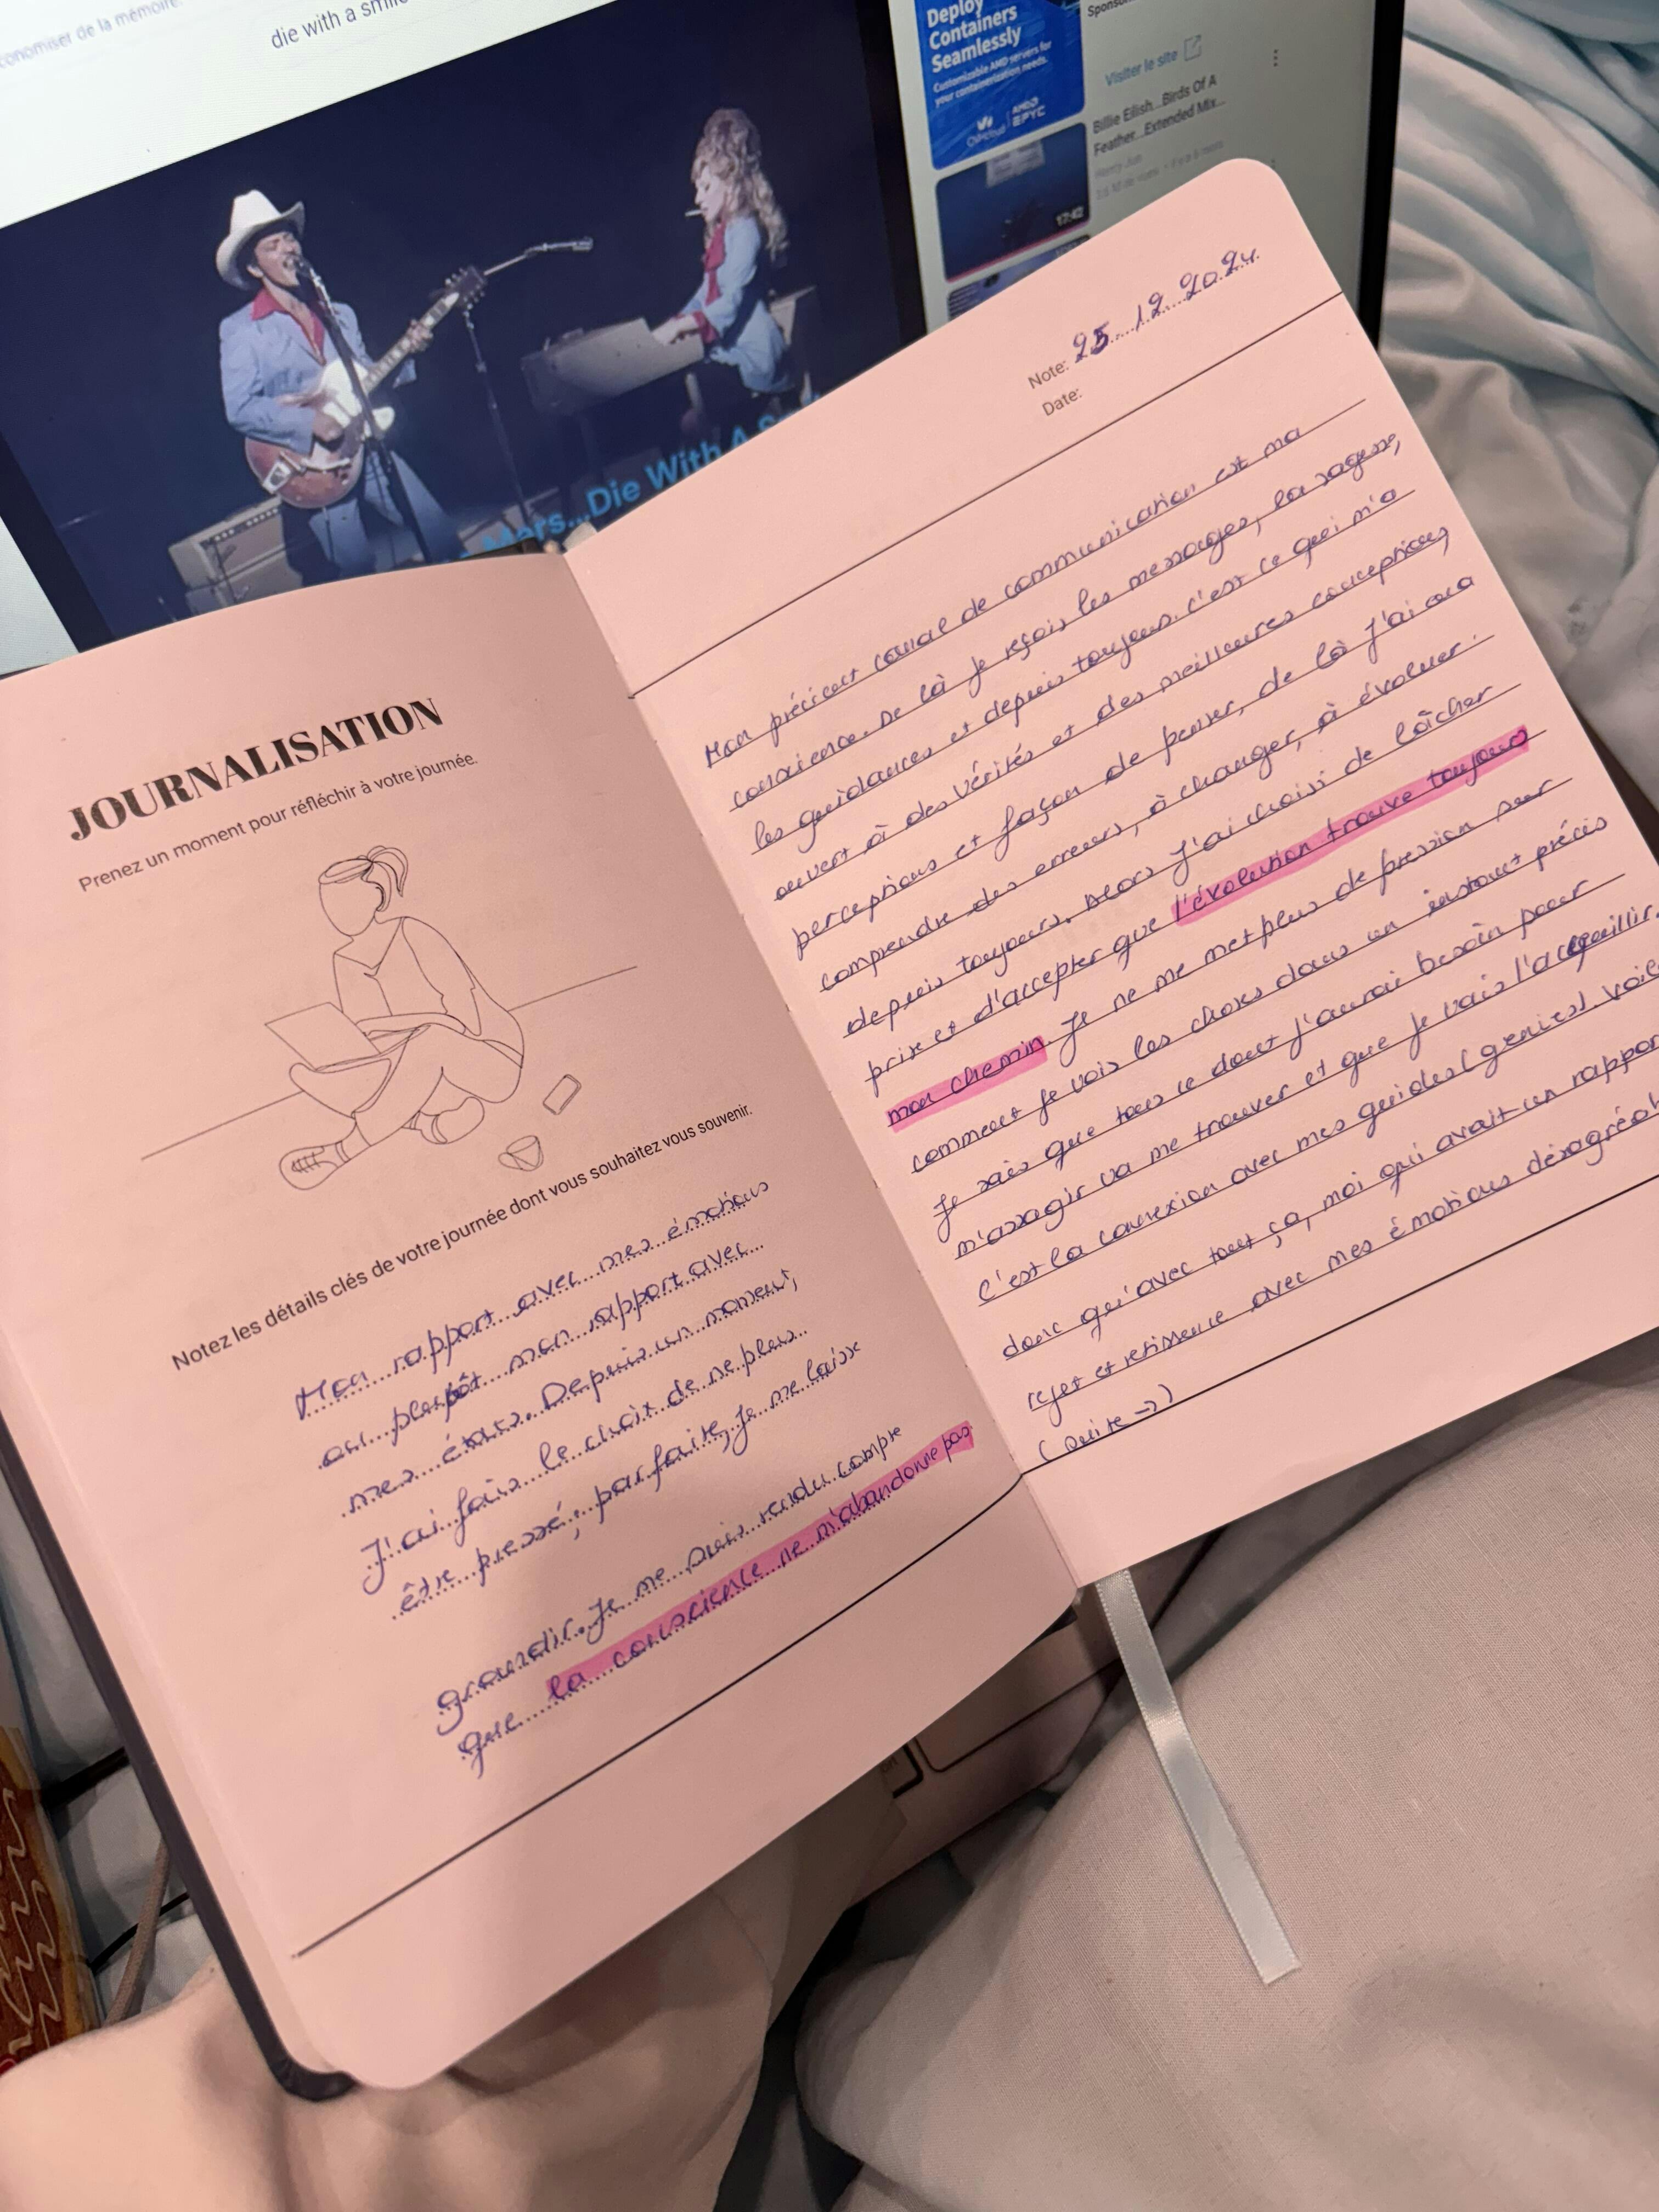 économiser de la mémoire.
die with a smile
Deploy
Containers
Seamlessly
Customizable AMD servers for
your containerization needs.
OVHcloud
AMD
EPYC
Sponsor
Visiter le site
Billie Eilish...Birds Of A
Feather...Extended Mix...
17:42
Mars...Die With A S
JOURNALISATION
Prenez un moment pour réfléchir à votre journée.
Notez les détails clés de votre journée dont vous souhaitez vous souvenir.
Mon rapport avec mes émotions
ou plutôt mon rapport avec
mes états. Depuis un moment,
J'ai fais le choix de ne plus
être pressé, parfaite, je me laisse
grandir. Je me suis rendu compte
que la conscience ne m'abandonne pas
Note: 25.12.2024
Date:
Mon précieux canal de communication est ma
conscience. De là je reçois les messages, la sagesse,
les guidances et depuis toujours. C'est ce qui m'a
ouvert à des vérités et des meilleures conceptions,
perceptions et façon de penser, de là j'ai
comprendre des erreurs, à changer, à évoluer.
depuis toujours. Alors J'ai choisi de lâcher
prise et d'accepter que l'évolution trouve toujours
mon chemin. Je ne me met plus de pression sur
comment je vois les choses dans un instant précis
Je sais que tous ce dont j'aurai besoin pour
m'assagir va me trouver et que je vais l'accueillir.
C'est la connexion avec mes guides (genies) voilà
donc qu'avec tout ça, moi qui avait un rapport
rejet et retissence avec mes émotions
(suite →)